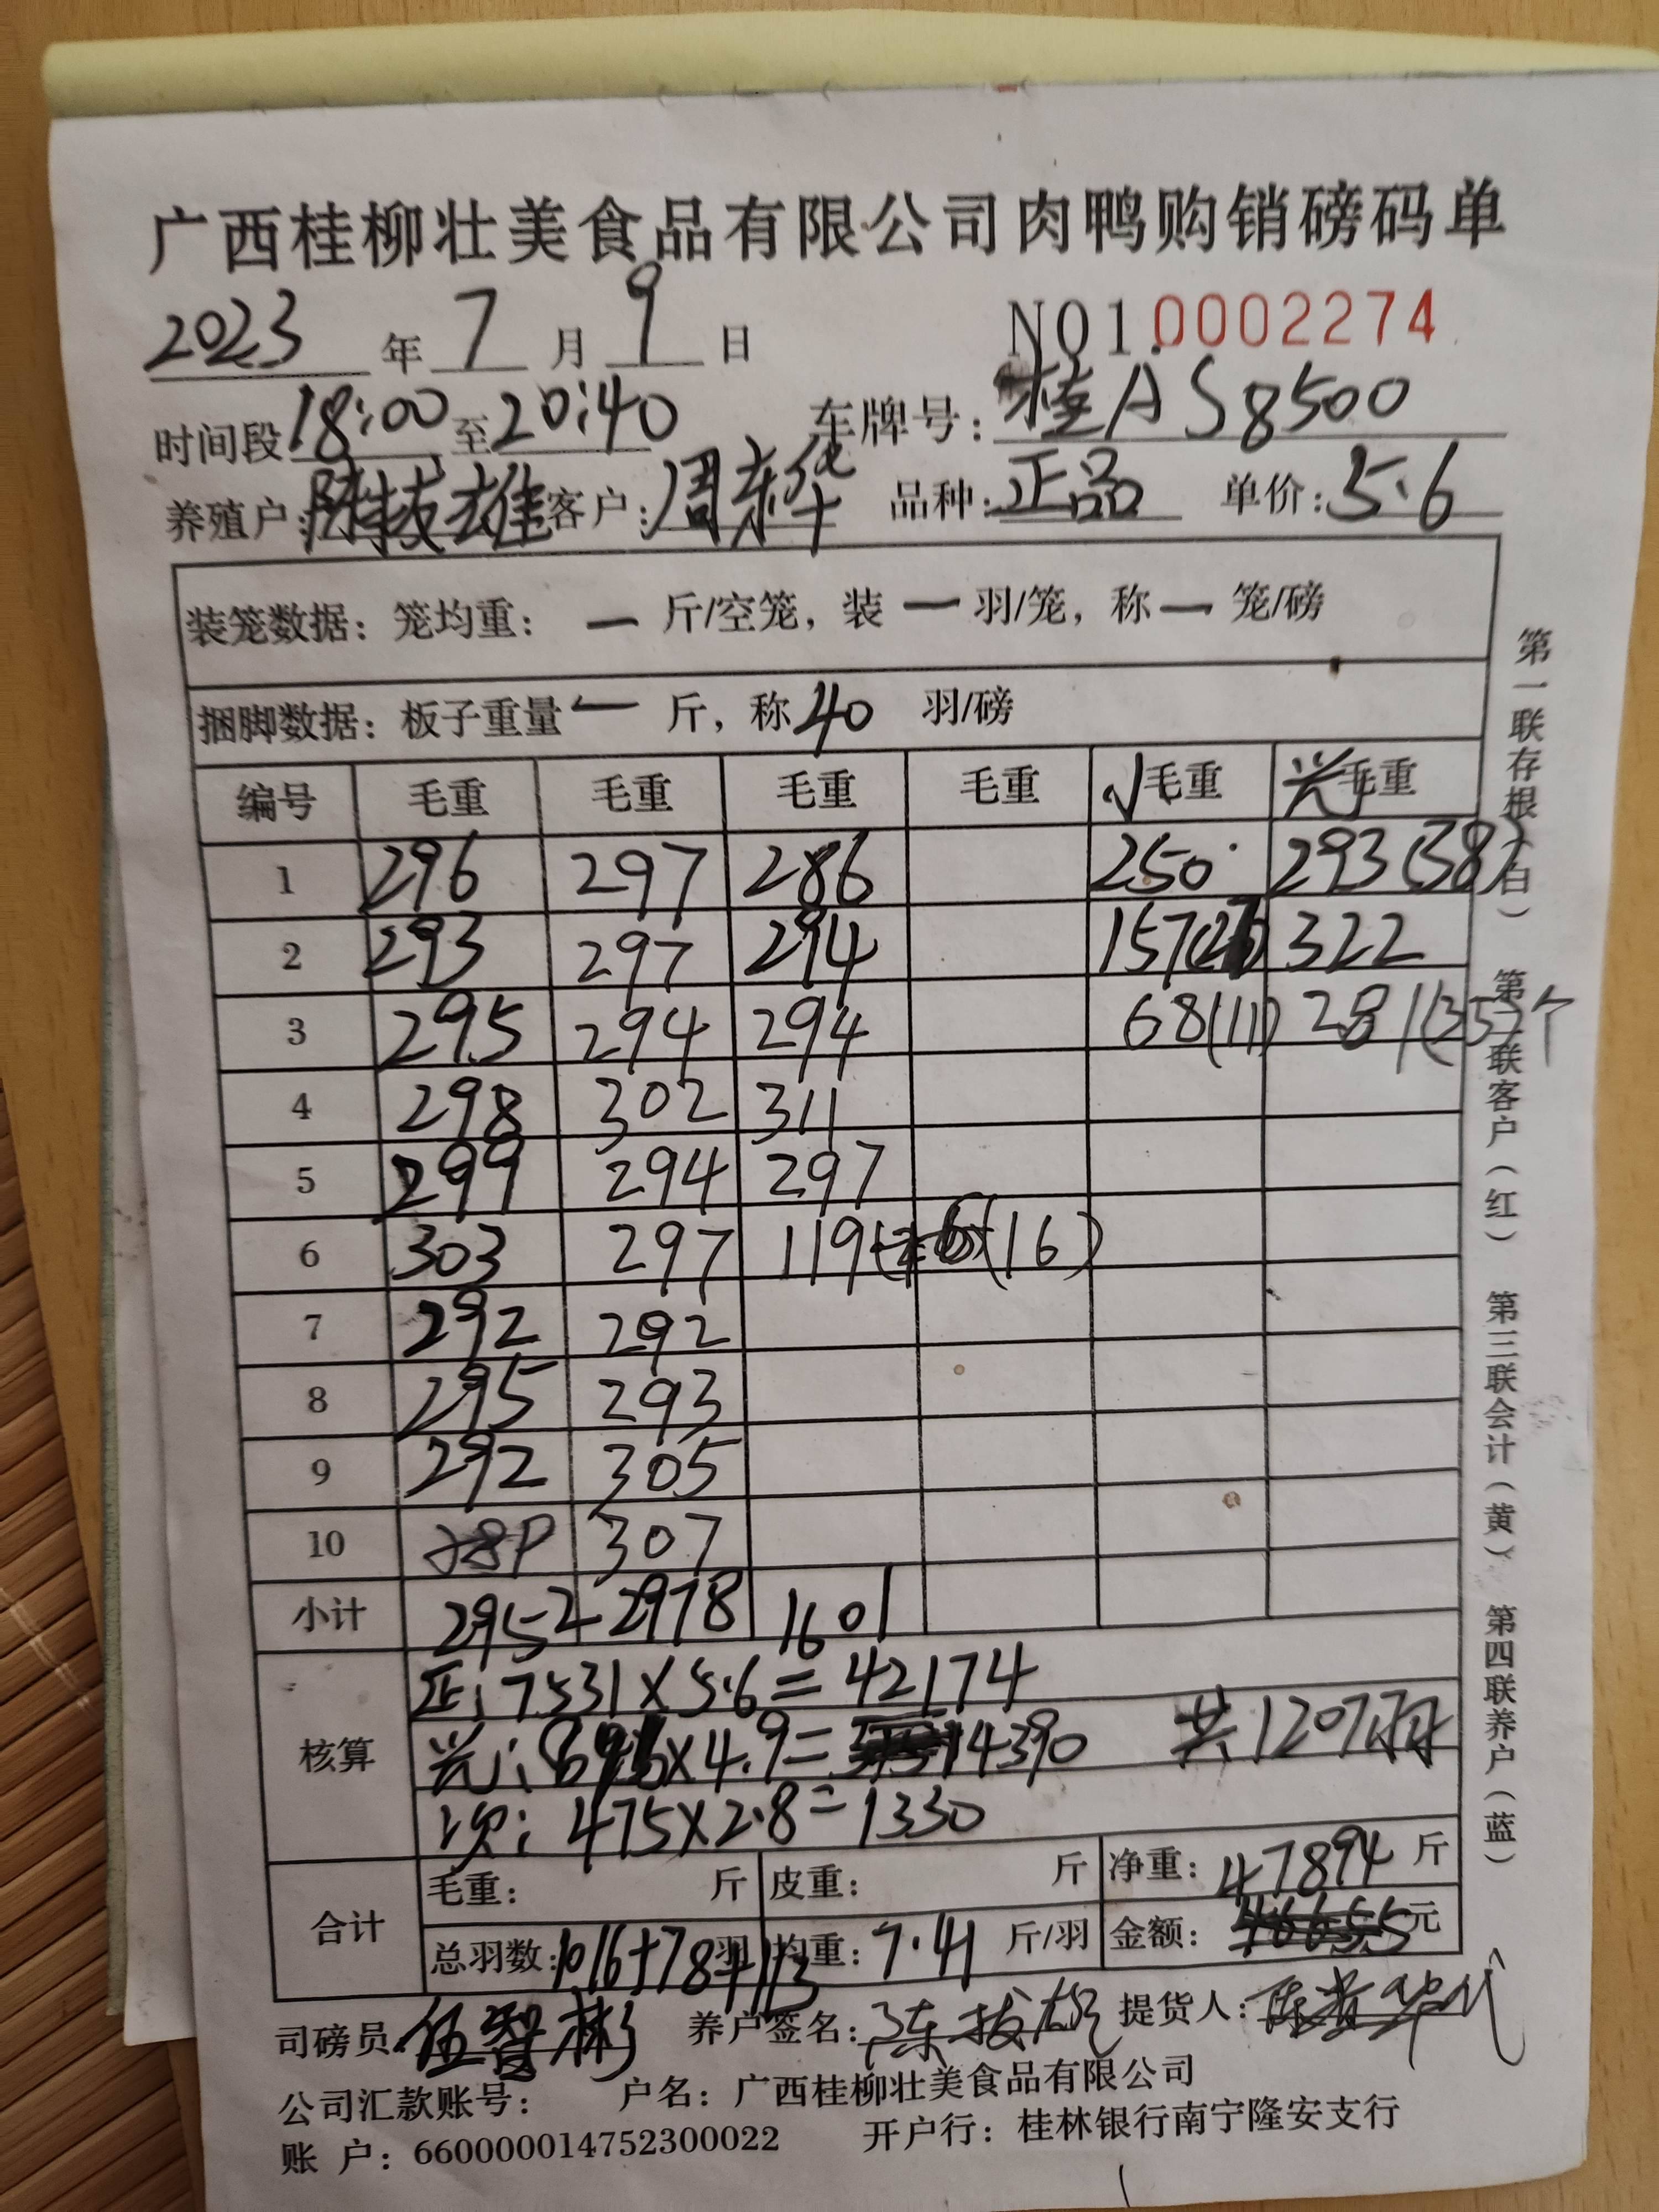 广西桂柳壮美食品有限公司肉鸭购销磅码单
2023年7月9日 NO1.0002274
时间段18:00至20:40 车牌号:桂AS8500
养殖户:陈拔雄 客户:周 品种:正品 单价:5.6
装笼数据:笼均重:一斤/空笼,装一羽/笼,称一笼/磅
捆脚数据:板子重量一斤,称40羽/磅
编号 毛重 毛重 毛重 毛重 √毛重 光毛重
1 296 297 286 250 293(38)
2 293 297 294 157 322
3 295 294 294 68(11) 281(35)个
4 298 302 311
5 299 294 297
6 303 297 119 (16)
7 292 292
8 295 293
9 292 305
10 289 307
小计 2952 2978 1601
核算
正:7531×5.6=42174
光:896×4.9=4390 共1207羽
次:475×2.8=1330
合计
毛重: 斤 皮重: 斤 净重:47894斤
总羽数:1016+78+113羽 均重:7.41斤/羽 金额: 元
司磅员:伍智彬 养户签名:陈拔雄 提货人:
公司汇款账号: 户名:广西桂柳壮美食品有限公司
账 户:660000014752300022 开户行:桂林银行南宁隆安支行
第一联存根(白) 第二联客户(红) 第三联会计(黄) 第四联养户(蓝)